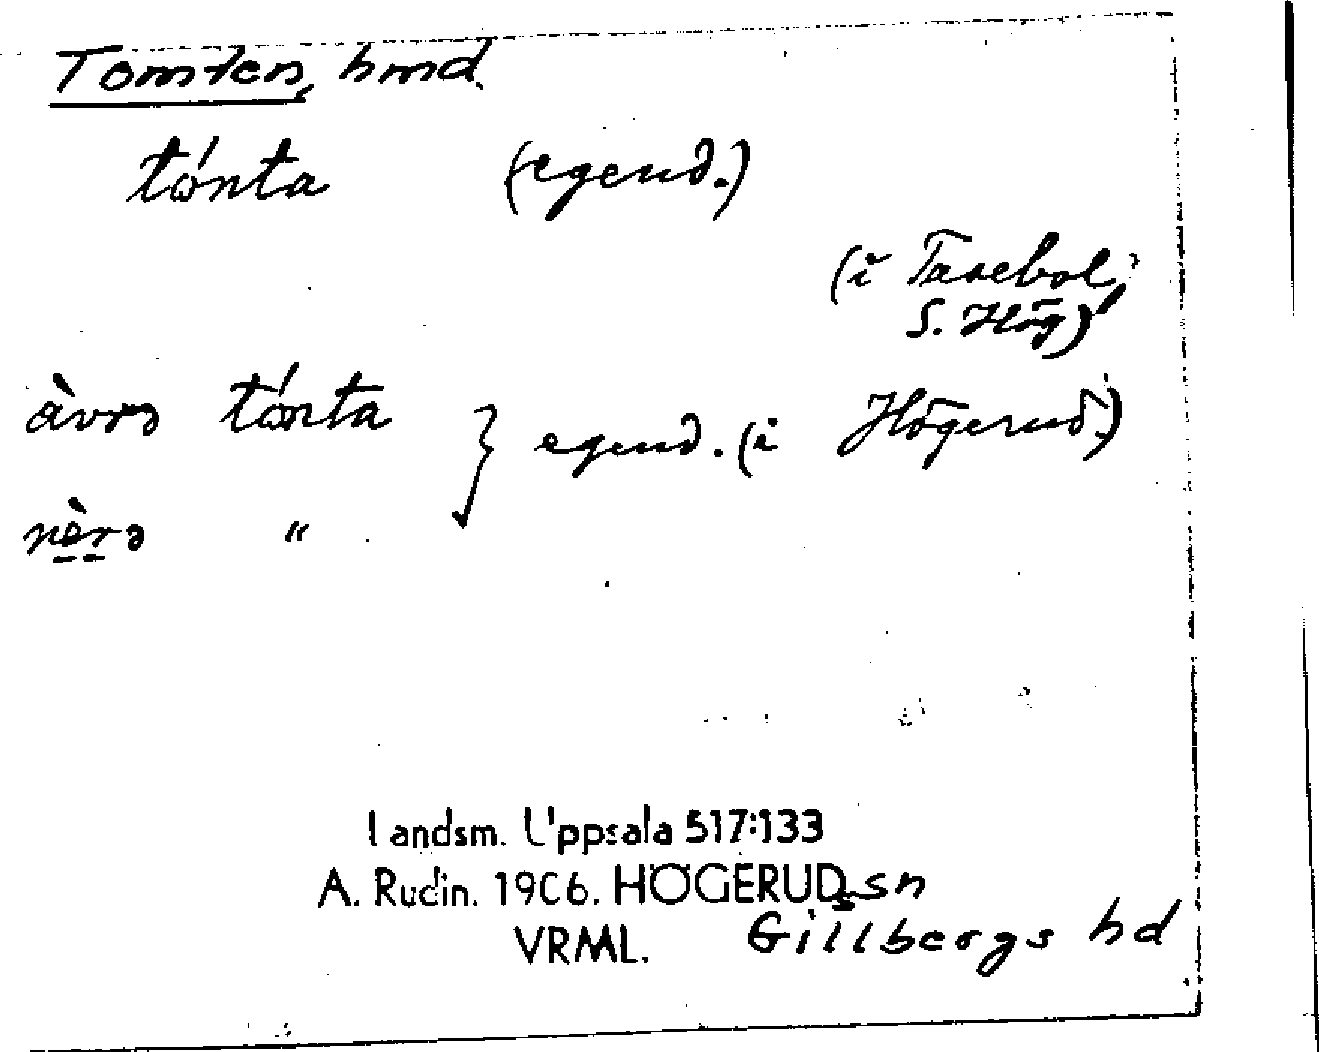 Tomten, hmd.
tónta (egend.)
(i Tasebol,
S. Hög)
àvrə tónta } egend. (i Högerud.)
nèrə "
Landsm. Uppsala 517:133
A. Rudin. 1906. HÖGERUDs sn
VRML. Gillbergs hd